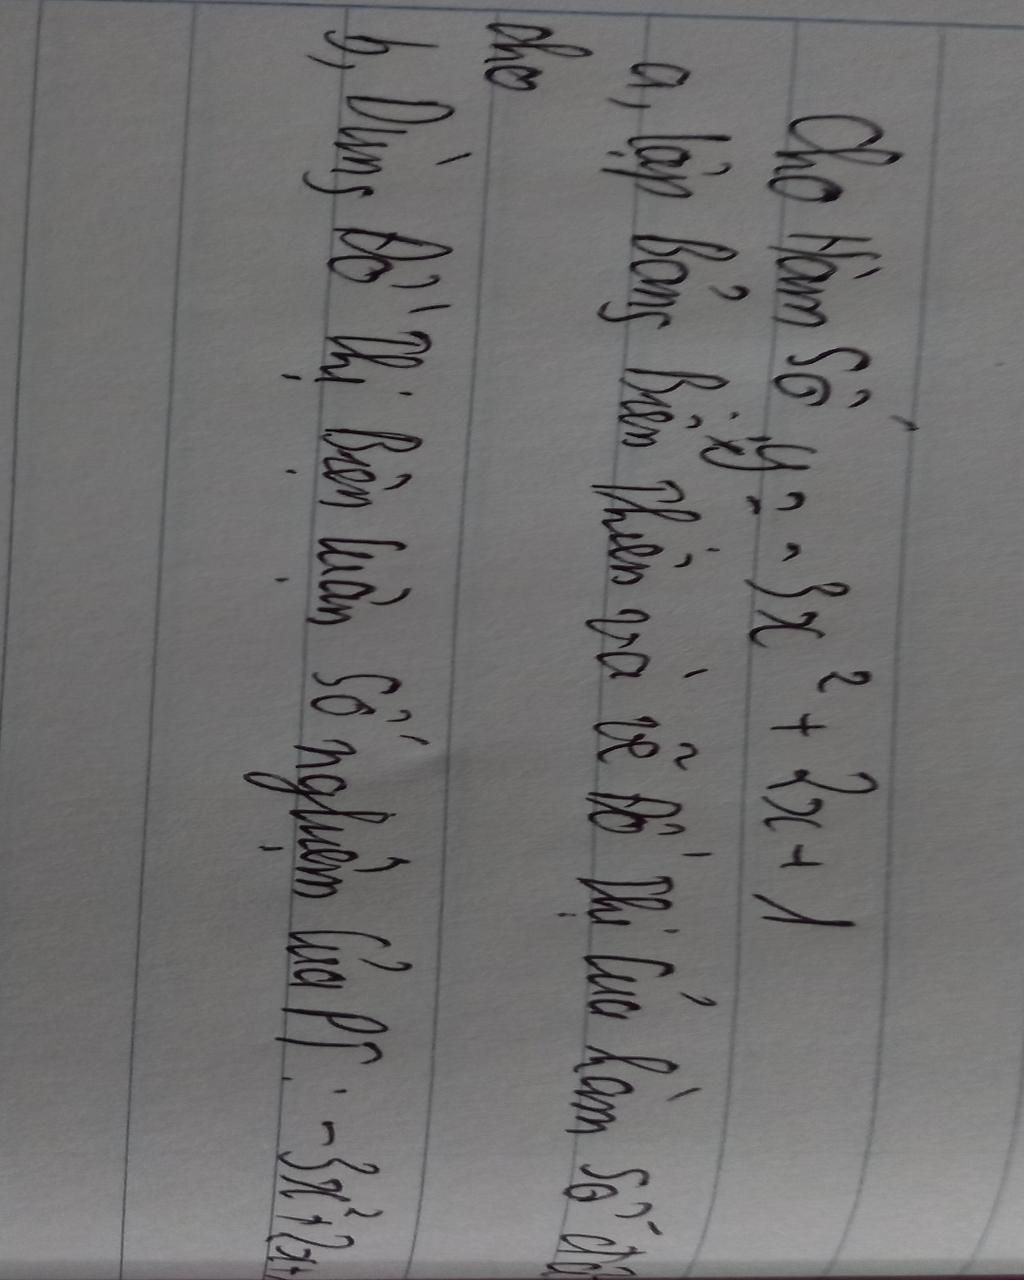 Cho Hàm Số y = -3x² + 2x + 1
a, lập Bảng biến Thiên và vẽ Đồ Thị Của hàm số đã
cho
b, Dùng Đồ Thị Biện luận Số nghiệm Của PT: -3x²+2x+